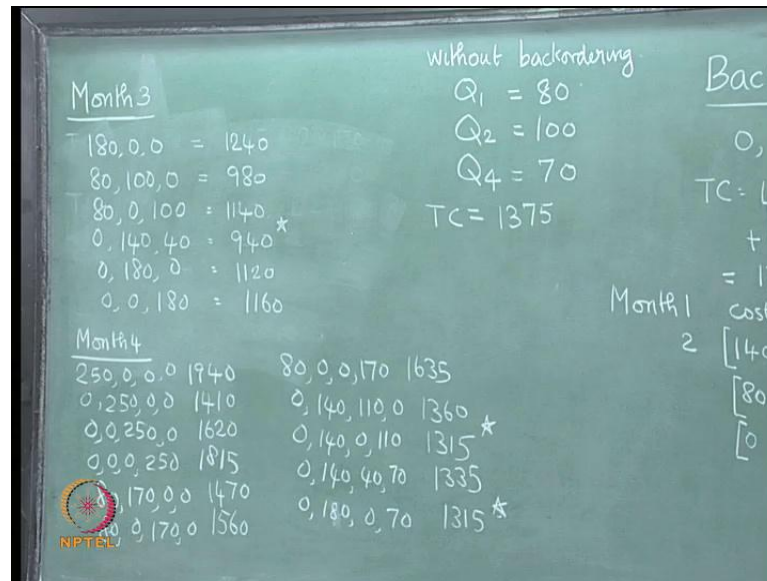 Month 3
180, 0, 0 = 1240
80, 100, 0 = 980
80, 0, 100 = 1140
0, 140, 40 = 940 *
0, 180, 0 = 1120
0, 0, 180 = 1160
Month 4
250, 0, 0, 0 1940
0, 250, 0, 0 1410
0, 0, 250, 0 1620
0, 0, 0, 250 1815
170, 0, 0 1470
0, 170, 0 1560
80, 0, 0, 170 1635
0, 140, 110, 0 1360
0, 140, 0, 110 1315 *
0, 140, 40, 70 1335
0, 180, 0, 70 1315 *
without backordering
Q1 = 80
Q2 = 100
Q4 = 70
TC = 1375
Bac
0,
TC =
+
= 1
Month 1 cost
2 [140
[80
[0
NPTEL